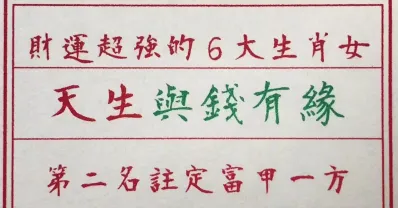 財運超強的6大生肖女
天生與錢有緣
第二名註定富甲一方